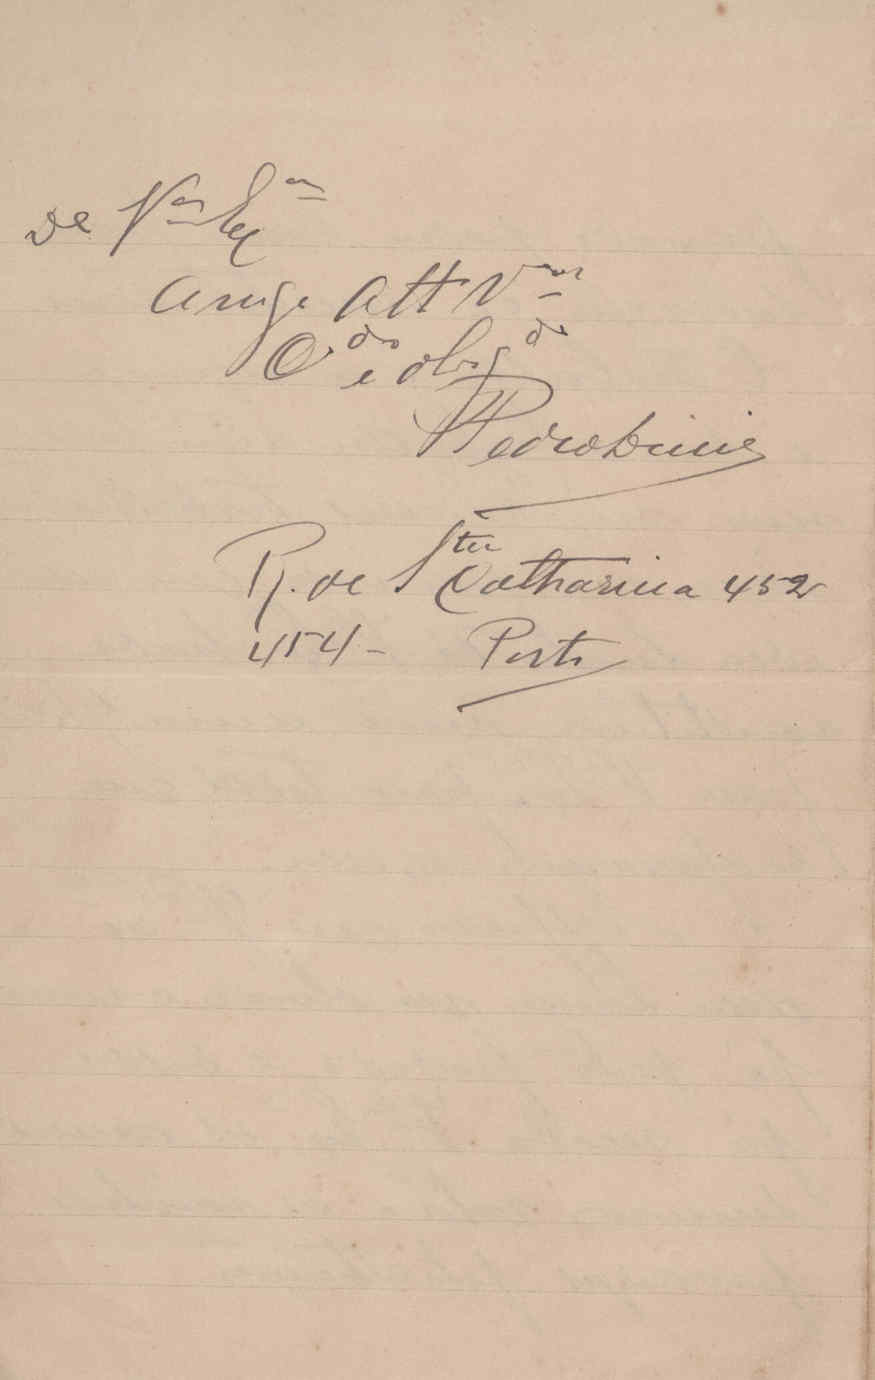 de Vª Exª
Amgº Attº Vºr
Cdo e obrgdo
Pedro
R. de Sta Catharina 452
454 - Porto